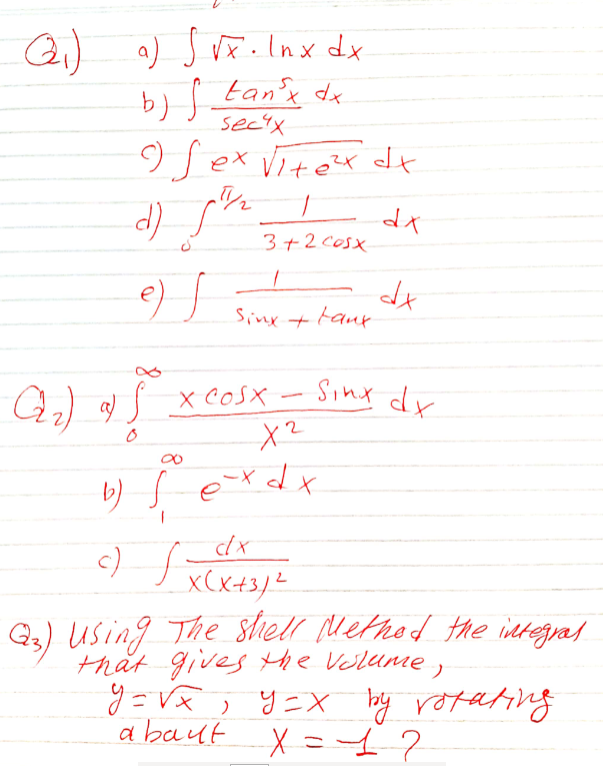 Q1) a) ∫ √x . lnx dx
b) ∫ tan⁵x / sec⁴x dx
c) ∫ eˣ √(1+e²ˣ) dx
d) ∫₀^(π/2) 1 / (3+2cosx) dx
e) ∫ 1 / (sinx + tanx) dx
Q2) a) ∫₀^∞ (x cosx − Sinx) / x² dx
b) ∫₁^∞ e⁻ˣ dx
c) ∫ dx / x(x+3)²
Q3) Using The shell Method the integral
that gives the Volume,
y = √x , y = x by rotating
abault x = -1 ?